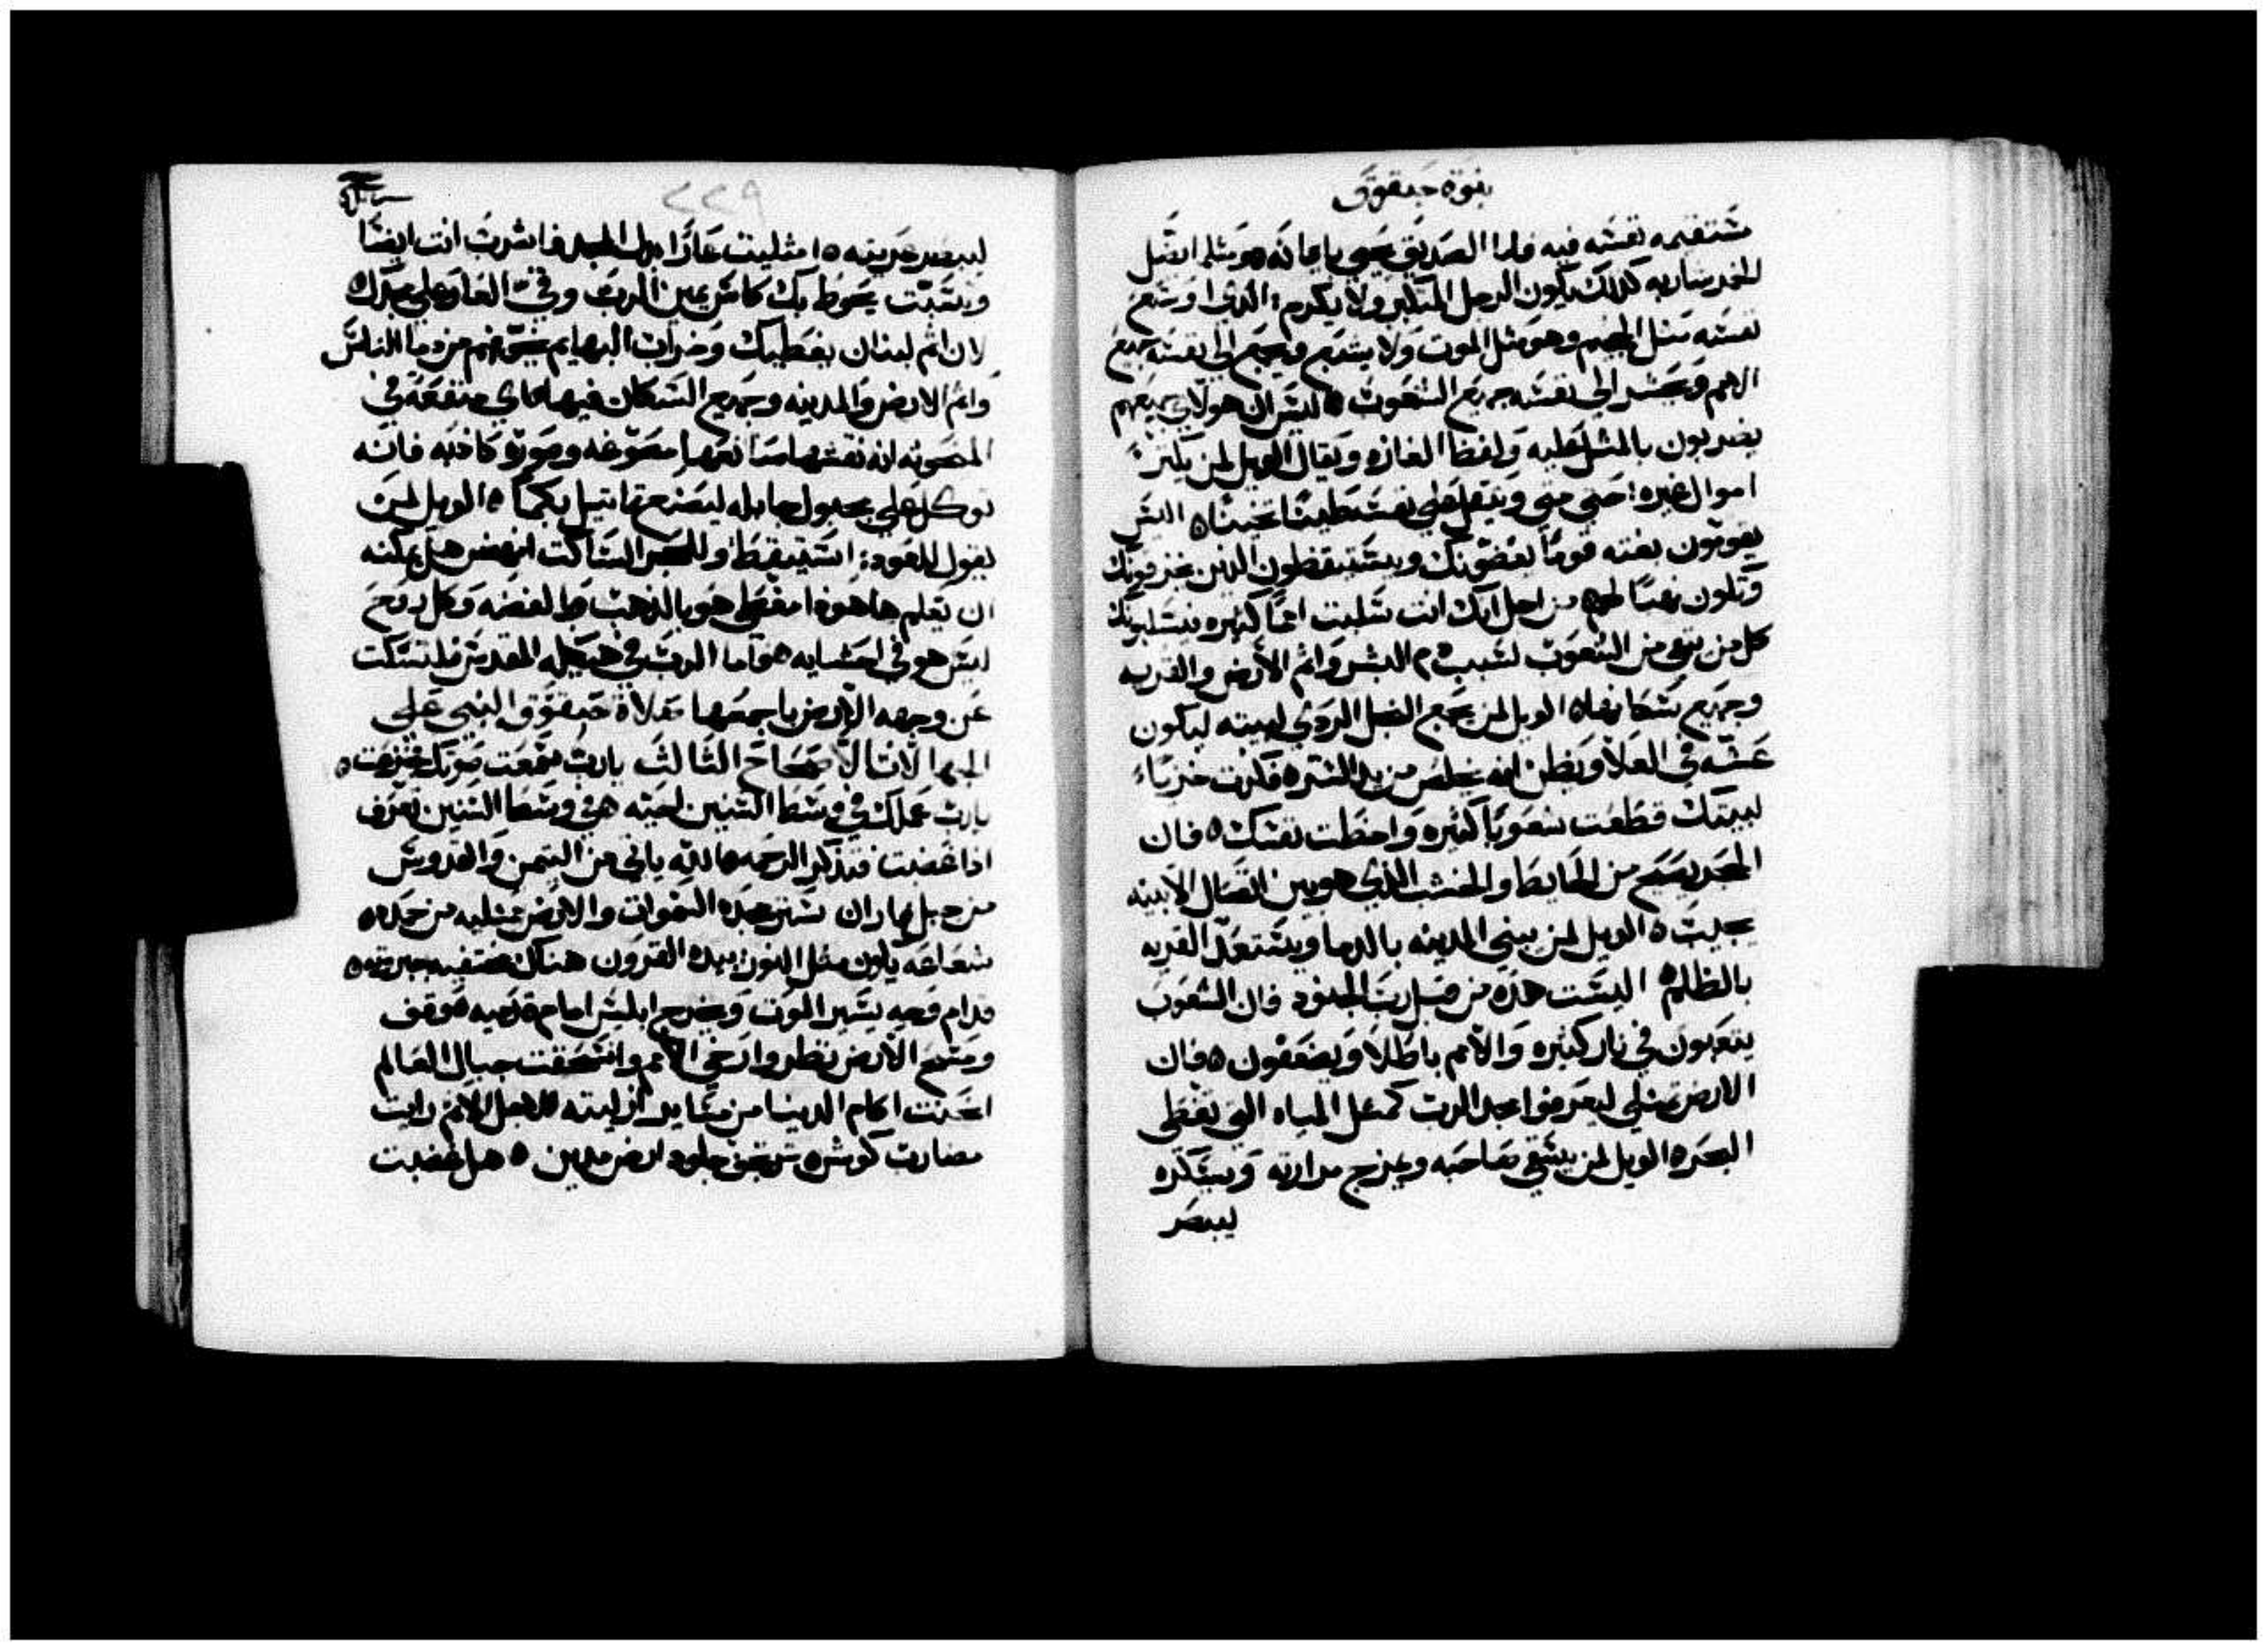 نبوة حبقوق
مستقيمه نفسه فيه فاما الصديق يحيى بايمانه ومثلما افضل
للخمر شاربه كذلك يكون الرجل المتكبر ولا يكرم الذي اوسع
نفسه مثل الجحيم وهو مثل الموت ولا يشبع ويجمع الى نفسه جميع
الامم ويحشد الى نفسه جميع الشعوب ليس ان هولاي جميعهم
يضربون بالمثل عليه ولفظ الغازه ويقال الويل لمن يكنز
اموال غيره حتى متى ويثقل على نفسه طينا ثخينا اليس
يقومون بغته قوما يعضونك ويستيقظون الذين يمزقونك
وتكون نهبا لهم من اجل انك انت سلبت امما كثيره فيسلبونك
كل من بقي من الشعوب لسبب دم البشر واثم الارض والقريه
وجميع سكانها الويل لمن يجمع البخل الردي لبيته ليكون
عشه في العلا ويظن انه يخلص من يد الشر فكرت خزياء
لبيتك قطعت شعوبا كثيره واخطت نفسك فان
الحجر يصيح من الحايط والخشب الذي هو بين اتصال الابنيه
يجيب الويل لمن يبني المدينه بالدما ويستعد القريه
بالظلم اليست هذه من قبل رب الجنود فان الشعوب
يتعبون في نار كثيره والامم باطلا ويضعفون فان
الارض تمتلي ليعرفوا مجد الرب كمثل المياه التي تغطي
البحر الويل لمن يسقي صاحبه ويمزج مرارته ويسكره
ليبصر
٢٢٩
ليبصر عريته امتليت عارا بدل المجد فاشرب انت ايضا
وتسبت يحوط بك كاس يمين الرب وقي العار على مجدك
لان اثم لبنان يغطيك وخراب البهايم يسحقهم من دما الناس
واثم الارض والمدينه وجميع السكان فيها ماي منفعه في
المنحوته انه نقشها صانعها مصوغه وصوره كاذبه فانه
توكل على مجبول جابله ليصنع تماثيل بكما الويل لمن
يقول للعود استيقظ وللحجر الساكت انهض هل يمكنه
ان يعلم ها هوذا مغطى هو بالذهب والفضه وكل روح
ليس هو في احشايه واما الرب في هيكله المقدس فلتسكت
عن وجهه الارض باجمعها صلاة حبقوق النبي على
الجهالات الاصحاح الثالث يارب سمعت صوتك فجزعت
يارب عملك في وسط السنين احيه في وسط السنين تعرف
اذا غضبت فتذكر الرحمه الله ياتي من التيمن والقدوس
من جبل فاران ستر مجده السموات والارض ممتليه من حمده
شعاعه يكون مثل النور بيده القرون هناك مختفيه جبروته
قدام وجهه يسير الموت ويخرج ابليس امام قدميه وقف
ومسح الارض نظر وارخى الامم وانسحقت جبال العالم
انحنت اكام الدنيا من مسايد ازليته لاجل الاثم رايت
مضارب كوش ترتجف جلود ارض مدين هل غضبت